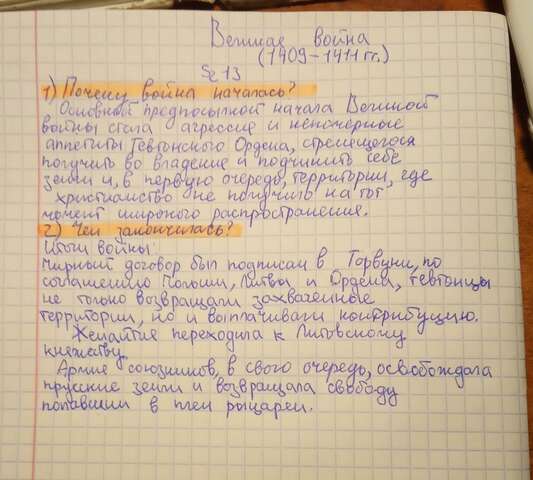 Великая война
(1409-1411 гг.)
§ 13
1) Почему война началась?
Основной предпосылкой начала Великой
войны стала агрессия и непомерные
аппетиты Тевтонского Ордена, стремящегося
получить во владение и подчинить себе
земли и, в первую очередь, территории, где
христианство не получило на тот
момент широкого распространения.
2) Чем закончилась?
Итоги войны:
Мирный договор был подписан в Торвуни, по
соглашению Польши, Литвы и Ордена, тевтонцы
не только возвращали захваченные
территории, но и выплачивали контрибуцию.
Жемайтия переходила к Литовскому
княжеству.
Армия союзников, в свою очередь, освобождала
прусские земли и возвращала свободу
попавшим в плен рыцарей.